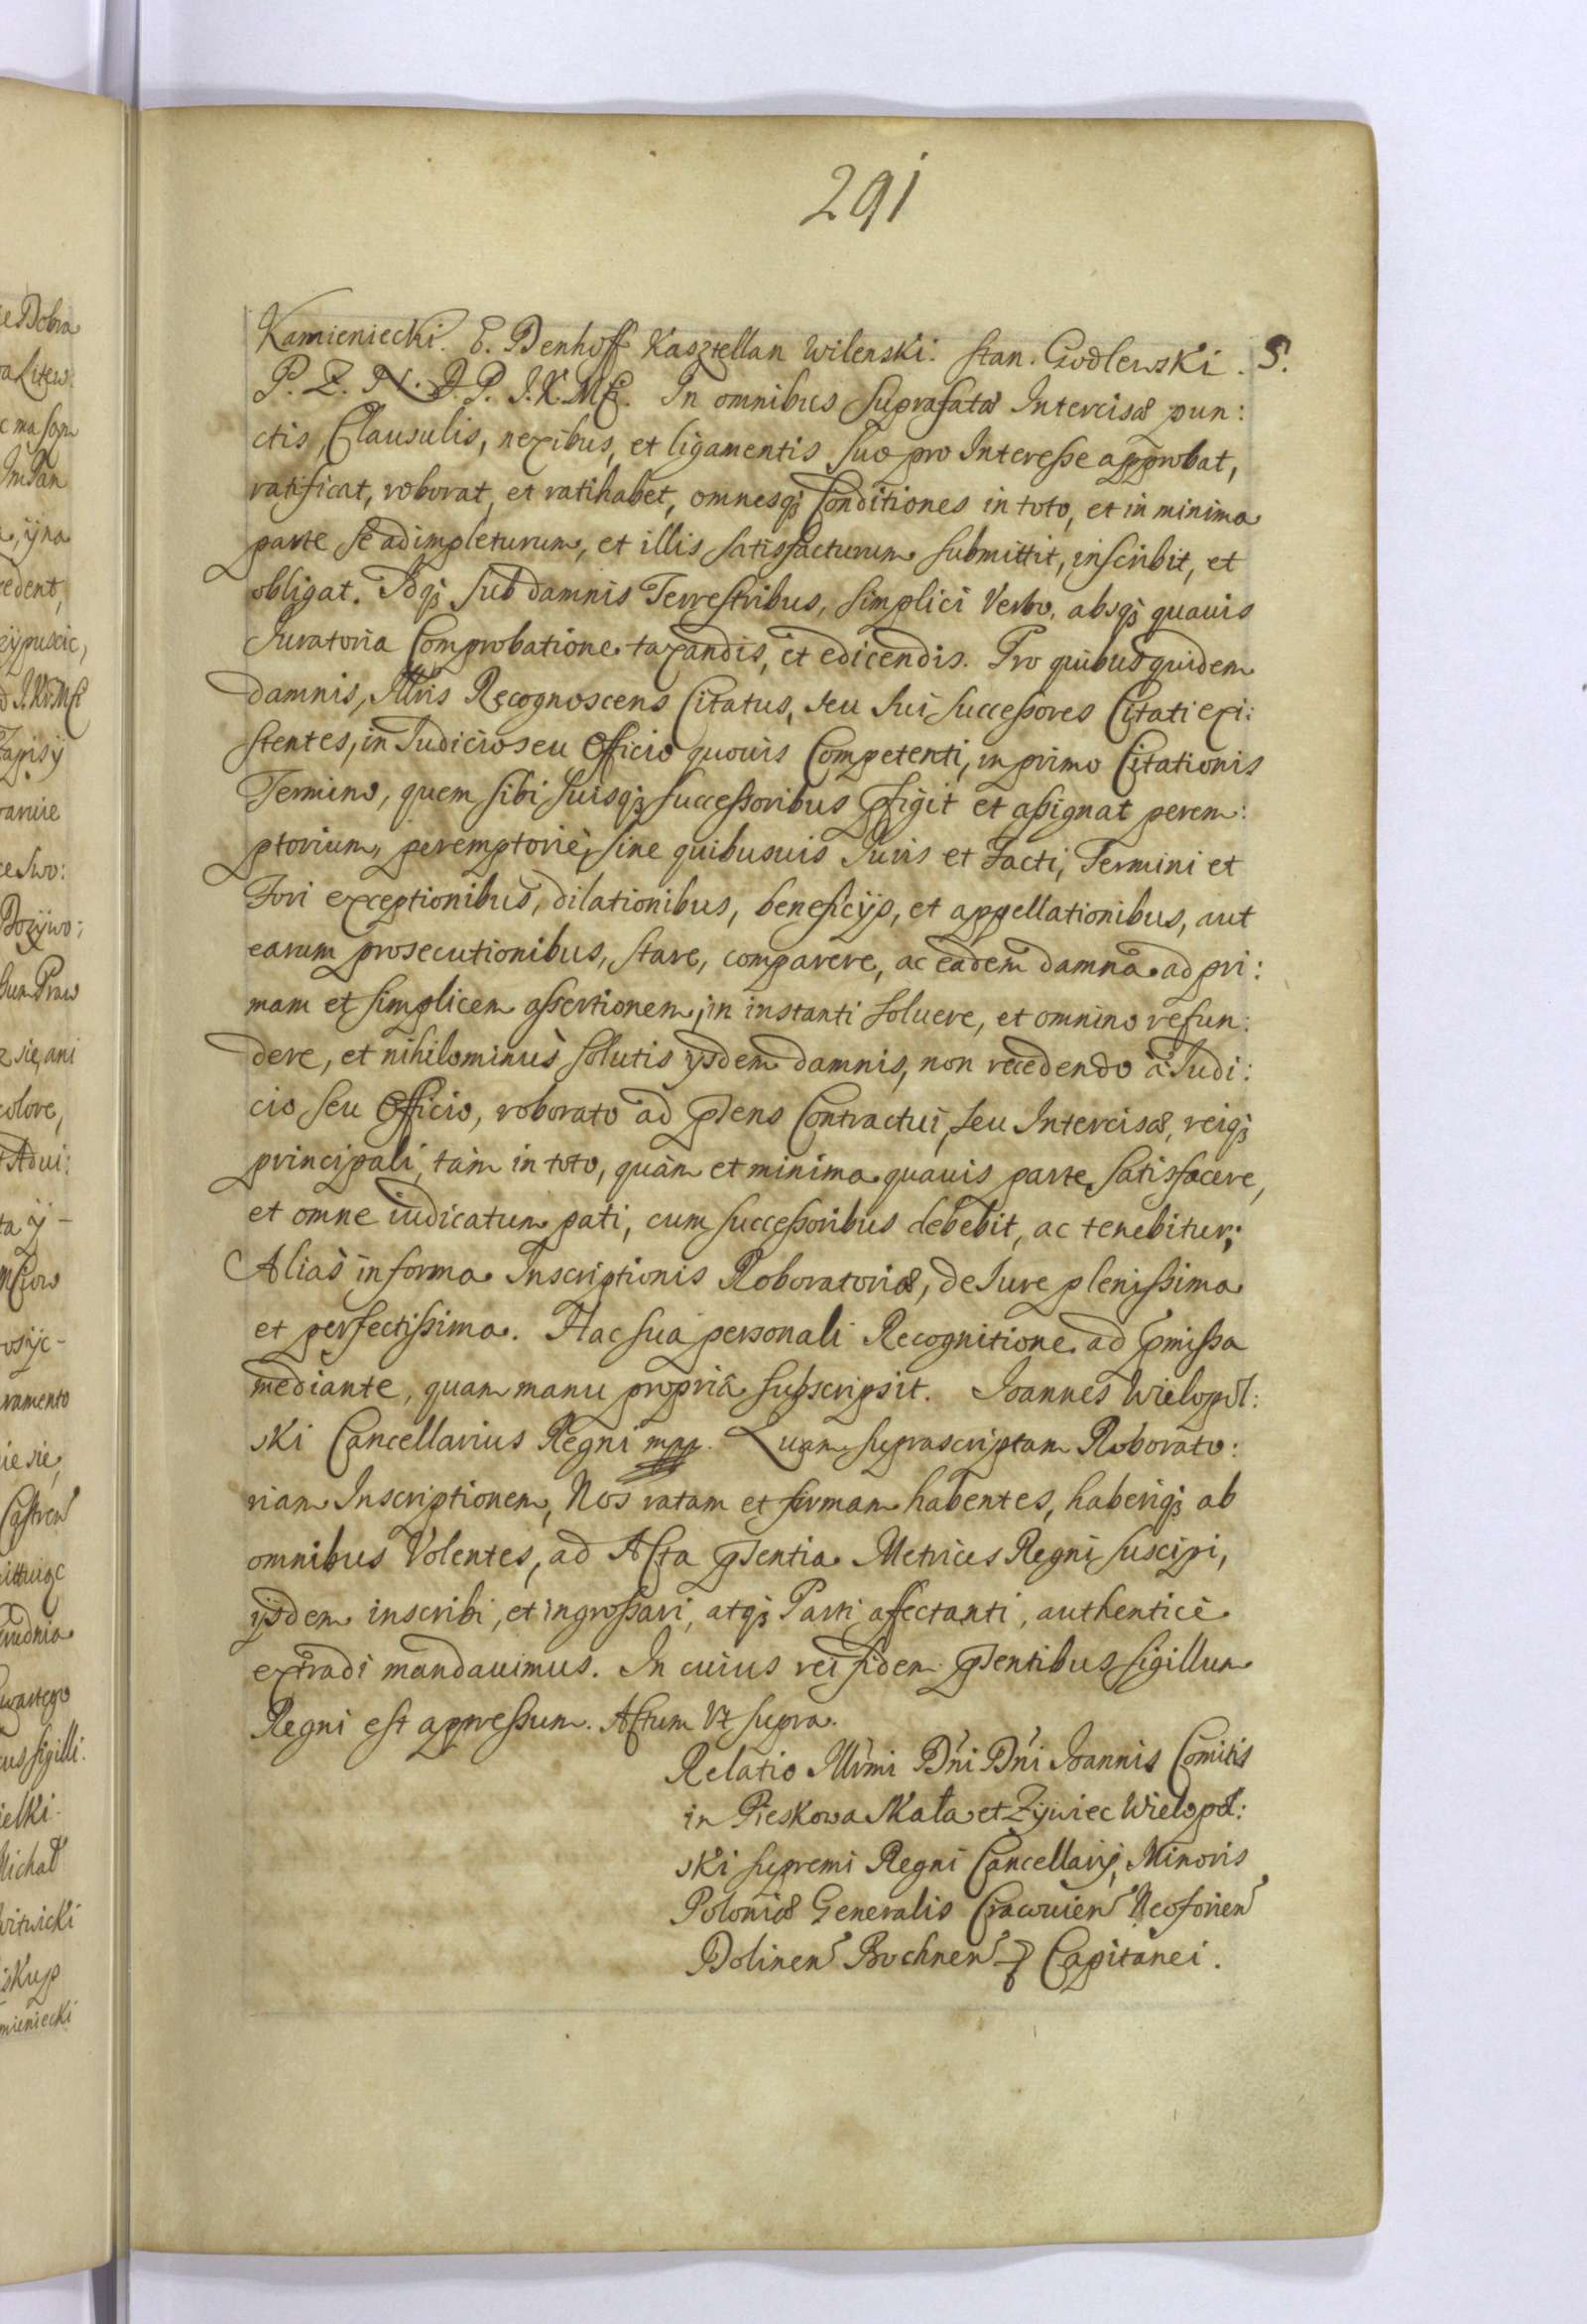 291
Kamieniecki. E. Denhoff Kasztellan Wilenski. Stan. Godlewski. S.
P. Z. N. D. P. J. K. Mci. In omnibus suprafatæ Intercisæ pun:
ctis, Clausulis, nexibus, et ligamentis suo pro Interesse approbat,
ratificat, roborat, et ratihabet, omnesqȝ Conditiones in toto, et in minima
parte se adimpleturum, et illis satisfacturum submittit, inscribit, et
obligat. Idqȝ sub damnis Terrestribus, simplici Verbo, absqȝ quauis
Iuratoria Comprobatione taxandis, et edicendis. Pro quibus quidem
damnis, Illris Recognoscens Citatus, seu sui successores Citati exi:
stentes, in Iudicio seu Officio quouis Competenti, in primo Citationis
Termino, quem sibi suisqȝ successoribus pfigit et assignat perem:
ptorium, peremptoriè, sine quibusuis Iuris et Facti, Termini et
Fori exceptionibus, dilationibus, beneficijs, et appellationibus, aut
earum prosecutionibus, stare, comparere, ac eadem damna ad pri:
mam et simplicem assertionem, in instanti soluere, et omnino refun:
dere, et nihilominus solutis ijsdem damnis, non recedendo à Iudi:
cio seu Officio, roborato ad psens Contractui, seu Intercisæ, reiqȝ
principali, tam in toto, quàm et minima quauis parte satisfacere,
et omne iudicatum pati, cum successoribus debebit, ac tenebitur;
Aliàs in forma Inscriptionis Roboratoriæ, de Iure plenissima
et perfectissima. Hac sua personali Recognitione ad pmissa
mediante, quam manu propriâ subscripsit. Ioannes Wielopol:
ski Cancellarius Regni mpp. Quam suprascriptam Roborato:
riam Inscriptionem, Nos ratam et firmam habentes, haberiqȝ ab
omnibus Volentes, ad Acta psentia Metrices Regni suscipi,
ijsdem inscribi, et ingrossari, atqȝ Parti affectanti, authenticè
extradi mandauimus. In cuius rei fidem psentibus sigillum
Regni est appressum. Actum Vt supra.
Relatio Illrmi Dni Dni Ioannis Comitis
in Pieskowa Skała et Zÿwiec Wielopol:
ski supremi Regni Cancellarij, Minoris
Poloniæ Generalis Cracouien Neoforien
Dolinen Bochnen Capitanei.